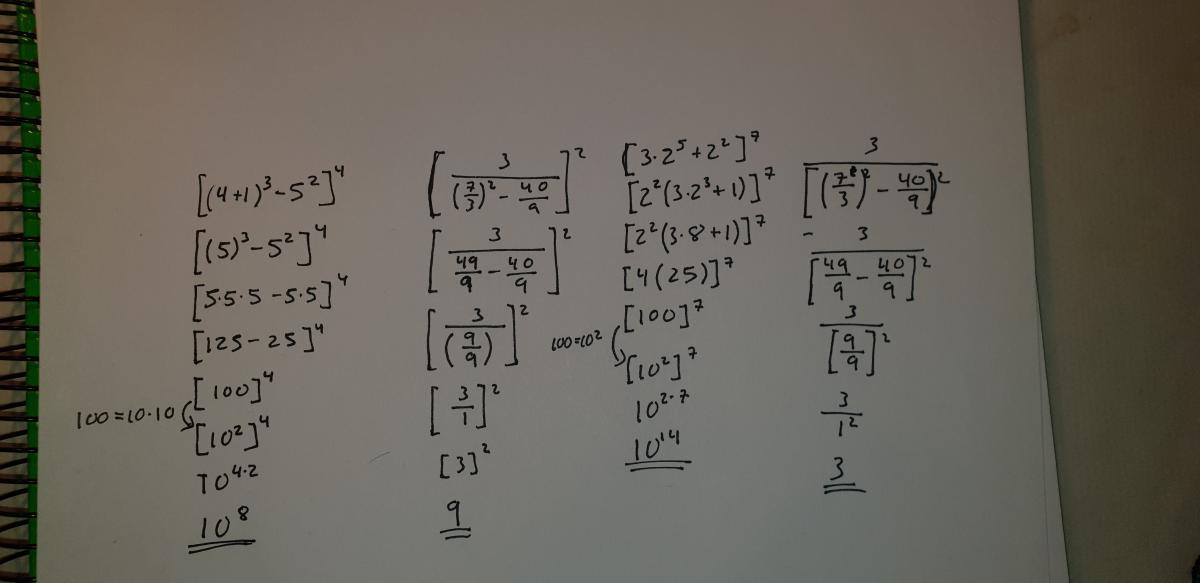 [(4+1)³-5²]⁴
[(5)³-5²]⁴
[5·5·5-5·5]⁴
[125-25]⁴
[100]⁴
100=10·10
[10²]⁴
10⁴·²
10⁸
[3/((7/3)²-40/9)]²
[3/(49/9-40/9)]²
[3/(9/9)]²
[3/1]²
[3]²
9
[3·2⁵+2²]⁷
[2²(3·2³+1)]⁷
[2²(3·8+1)]⁷
[4(25)]⁷
[100]⁷
100=10²
[10²]⁷
10²·⁷
10¹⁴
3/[(7/3)²-40/9]²
3/[49/9-40/9]²
3/[9/9]²
3/1²
3